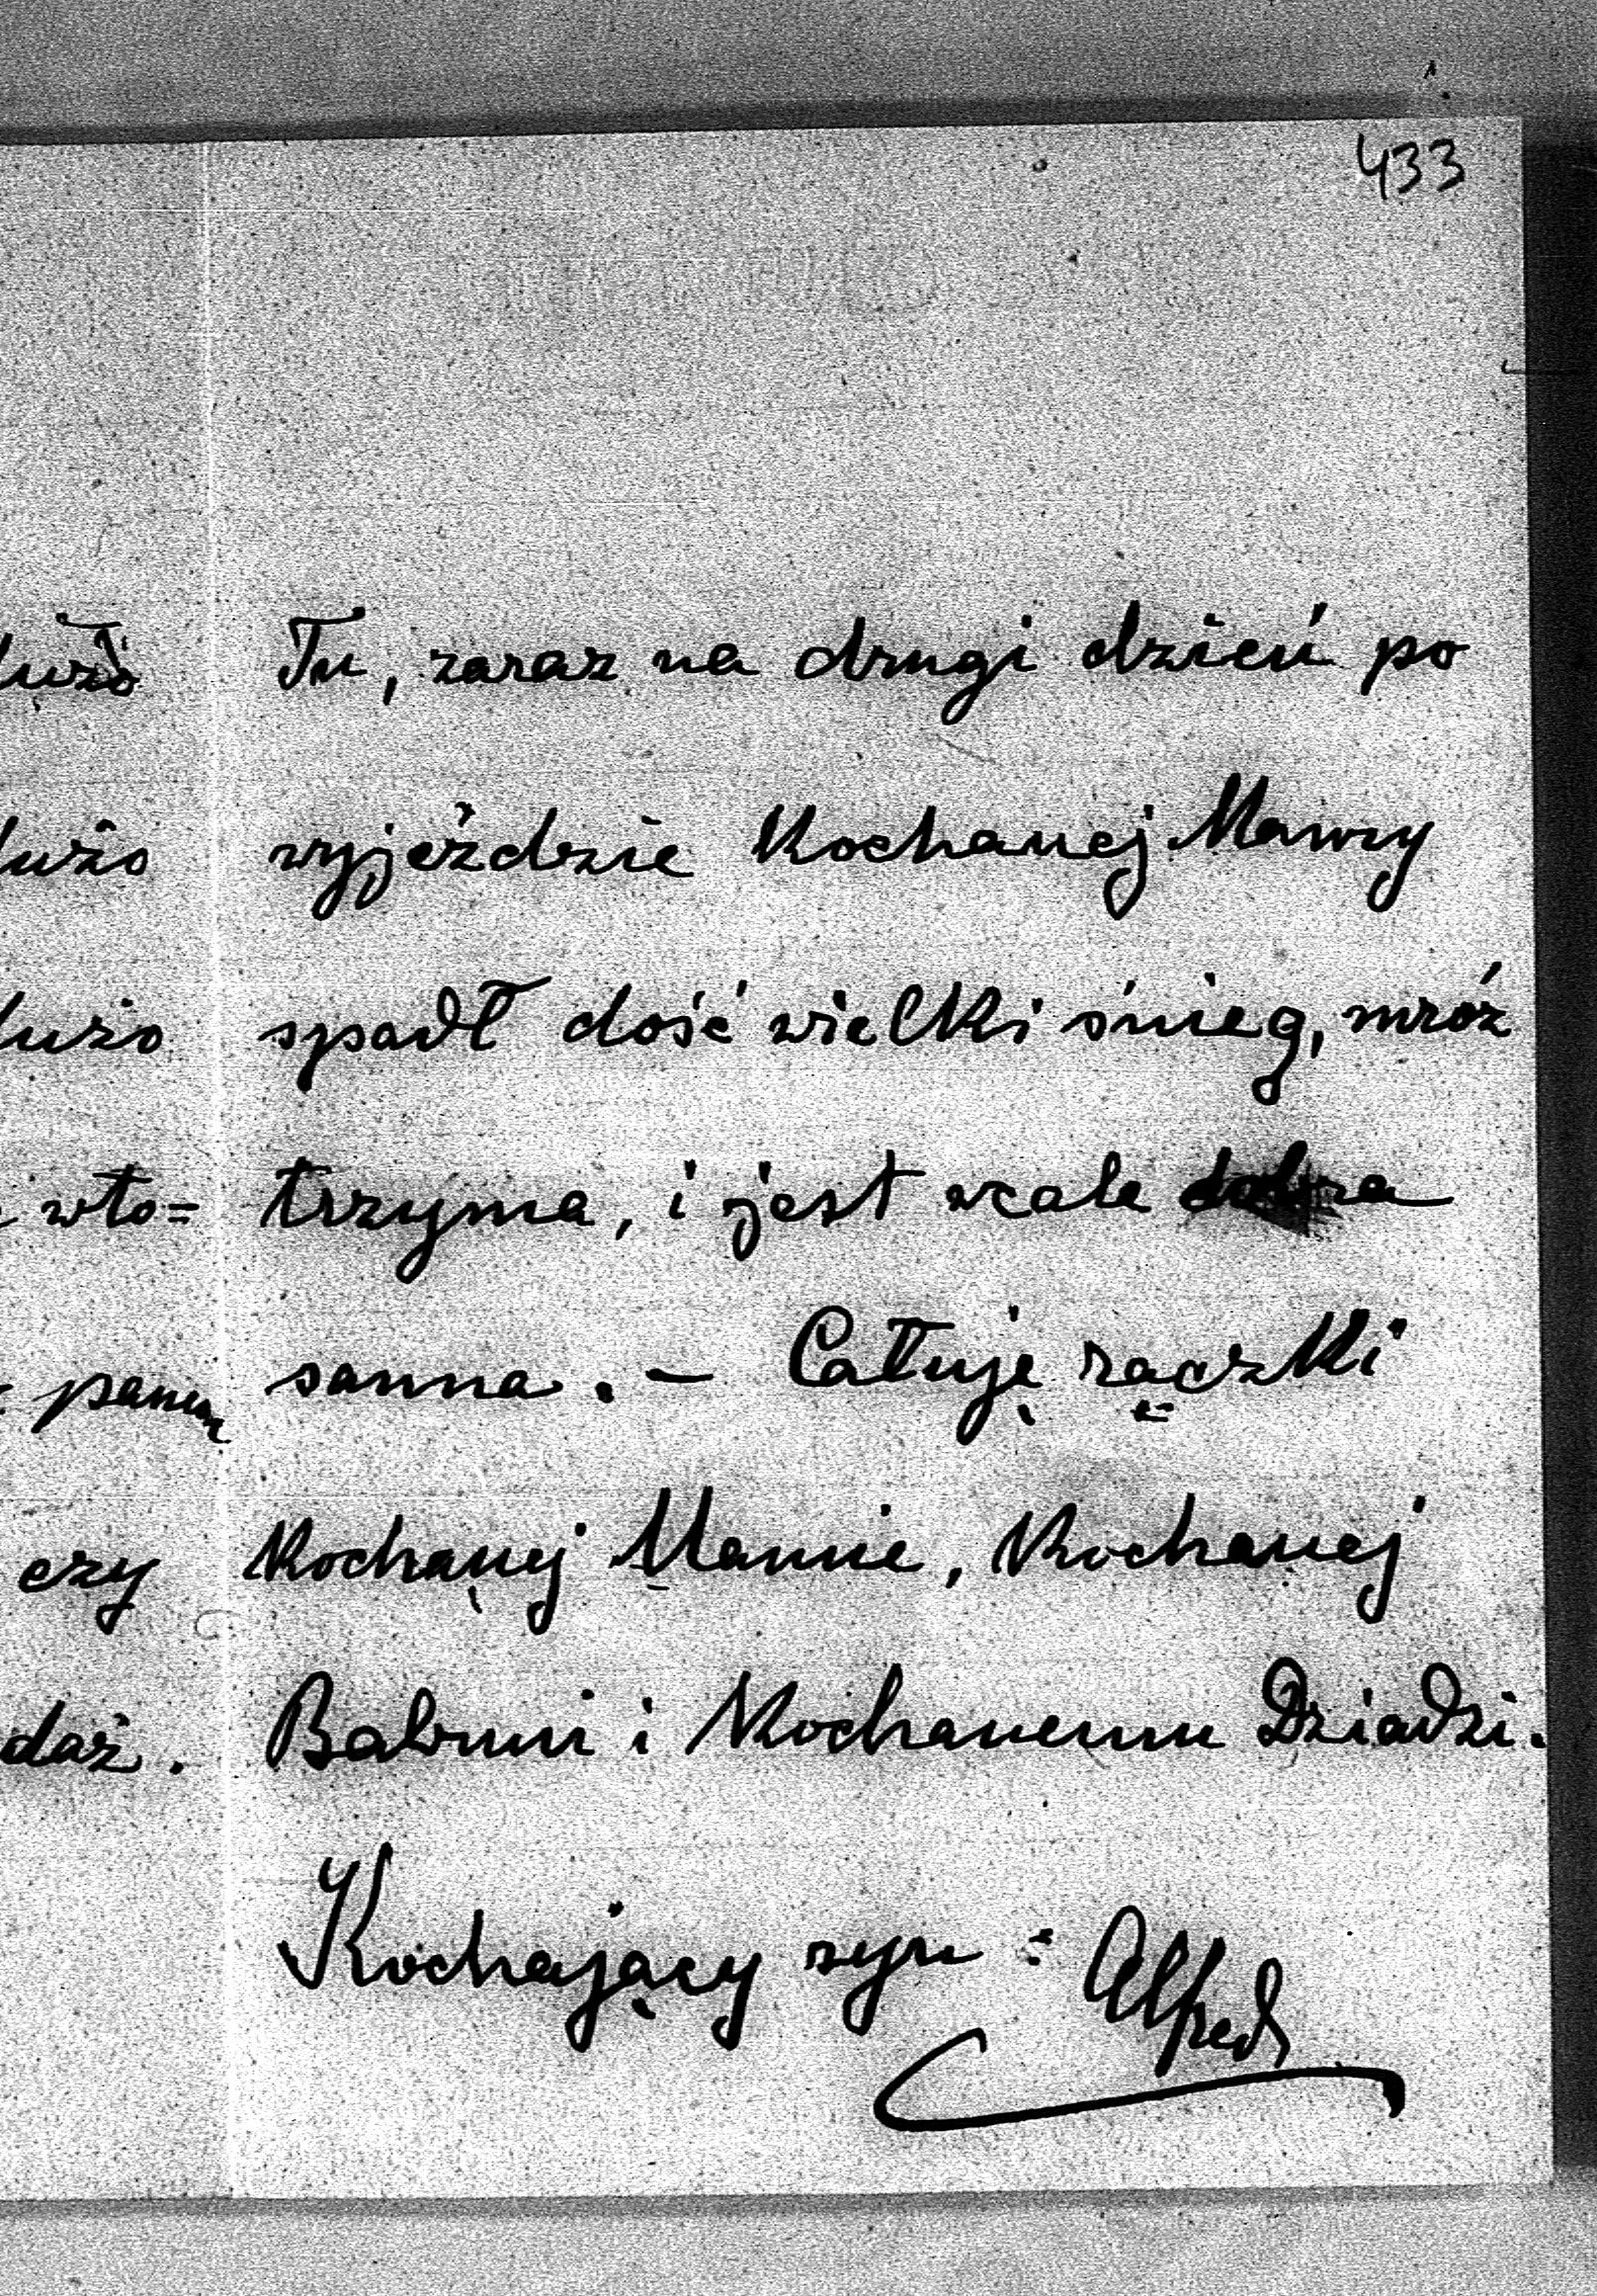 433
Tu, zaraz na drugi dzień po
wyjeździe Kochanej Mamy
spadł dość wielki śnieg, mróz
trzyma, i jest wcale dobra
sanna. – Całuję rączki
Kochanej Mamie, Kochanej
Babuni i Kochanemu Dziadzi.
Kochający syn : Alfred